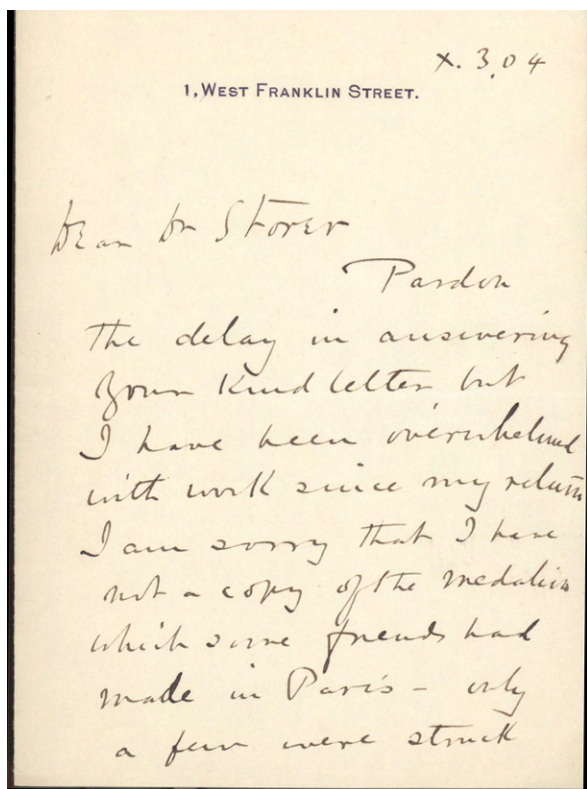 X.3.04
1, WEST FRANKLIN STREET.
Dear Dr Storer
Pardon
the delay in answering
your kind letter, but
I have been overwhelmed
with work since my return
I am sorry that I have
not a copy of the medalion
which some friends had
made in Paris - only
a few were struck